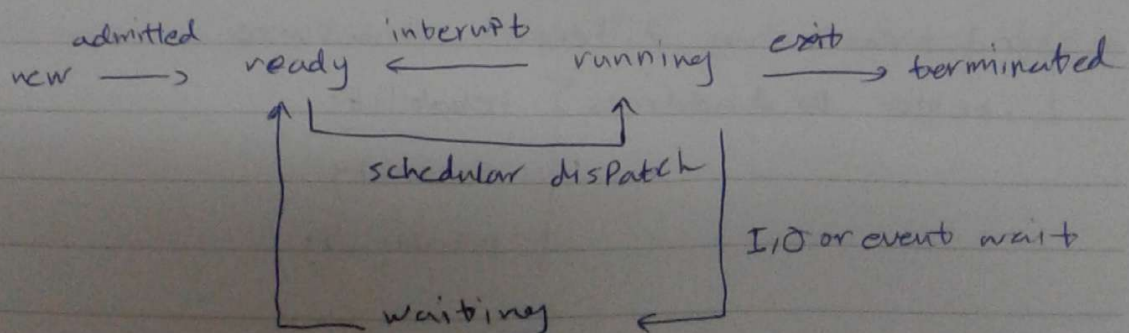 admitted interupt exit
new ready running terminated
schedular dispatch
I/O or event wait
waiting